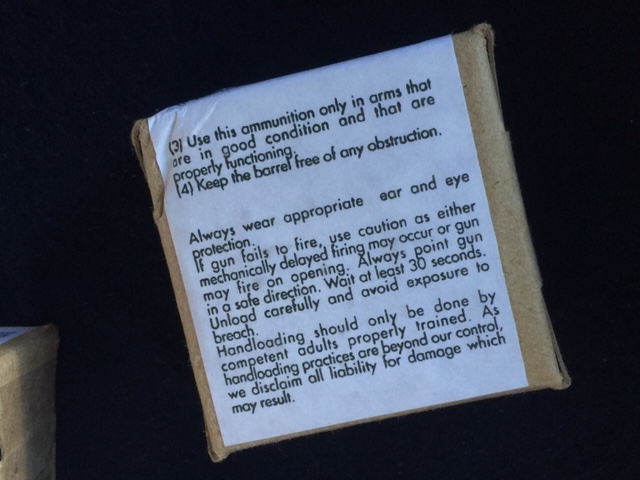 (3) Use this ammunition only in arms that
are in good condition and that are
properly functioning.
(4) Keep the barrel free of any obstruction.
Always wear appropriate ear and eye
protection.
If gun fails to fire, use caution as either
mechanically delayed firing may occur or gun
may fire on opening. Always point gun
in a safe direction. Wait at least 30 seconds.
Unload carefully and avoid exposure to
breach.
Handloading should only be done by
competent adults properly trained. As
handloading practices are beyond our control,
we disclaim all liability for damage which
may result.